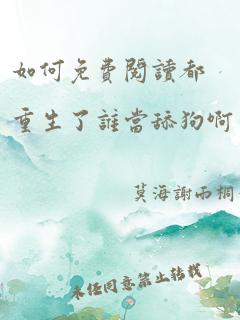 如何免費閱讀都
重生了誰當舔狗啊
莫海謝雨桐
未經同意禁止轉載